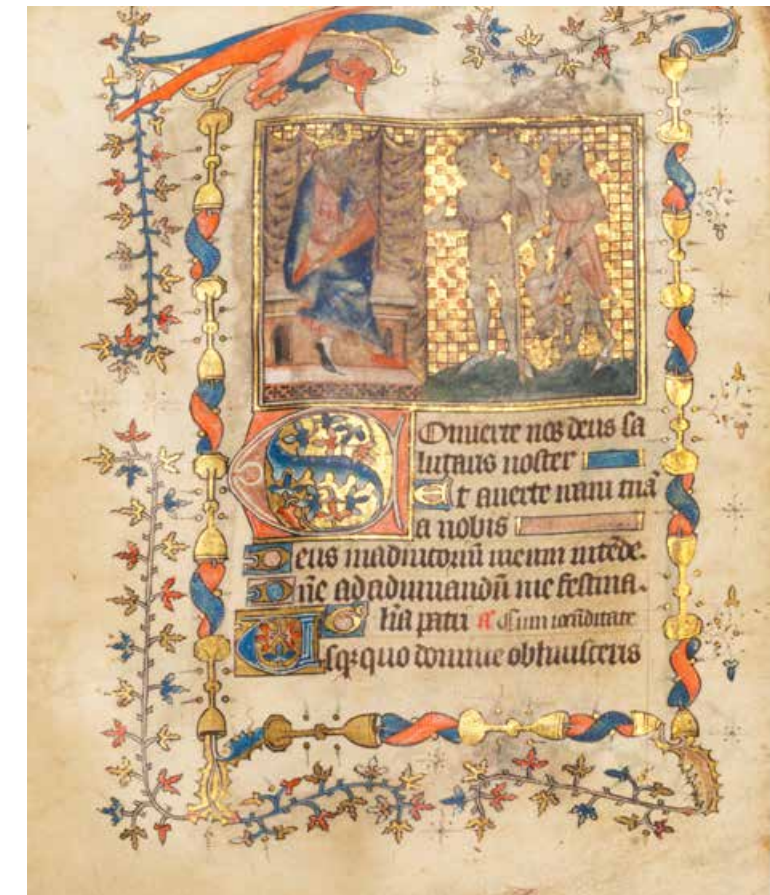 Conuerte nos deus sa
lutaris noster
Et auerte iram tuā
a nobis
Deus in adiutoriū meum intēde.
Dn̄e ad adiuuandū me festina.
Gl̄ia patri a͞ Cum iocūditate
Usqꝫ quo domine obliuisceris